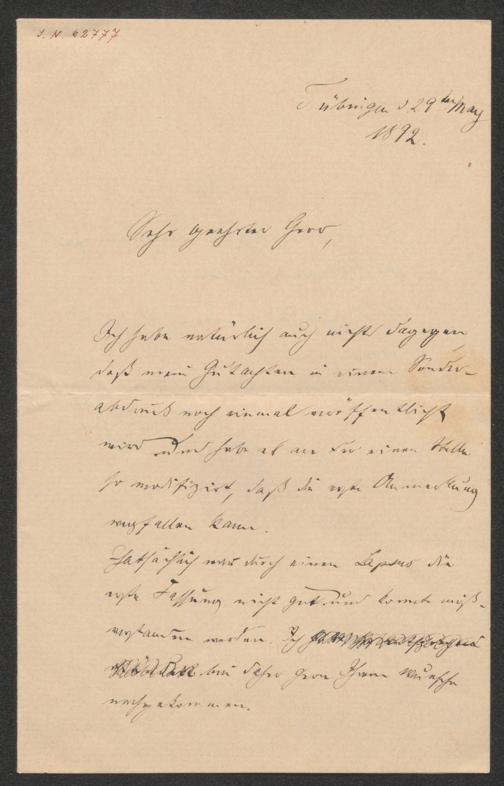 J. N. 62777
Tübingen d 29ten May
1892.
Sehr geehrter Herr,
Ich habe natürlich auch nichts dagegen
daß mein Gutachten in einem Sonder-
abdruck noch einmal veröffentlicht
wird und habe es an der einen Stelle
so modifizirt, daß die erste Anmerkung
wegfallen kann.
Thatsächlich war durch einen Lapsus die
erste Fassung nicht gut und konnte miß-
verstanden werden. Ich
bin daher gern Ihrem Wunsche
nachgekommen.